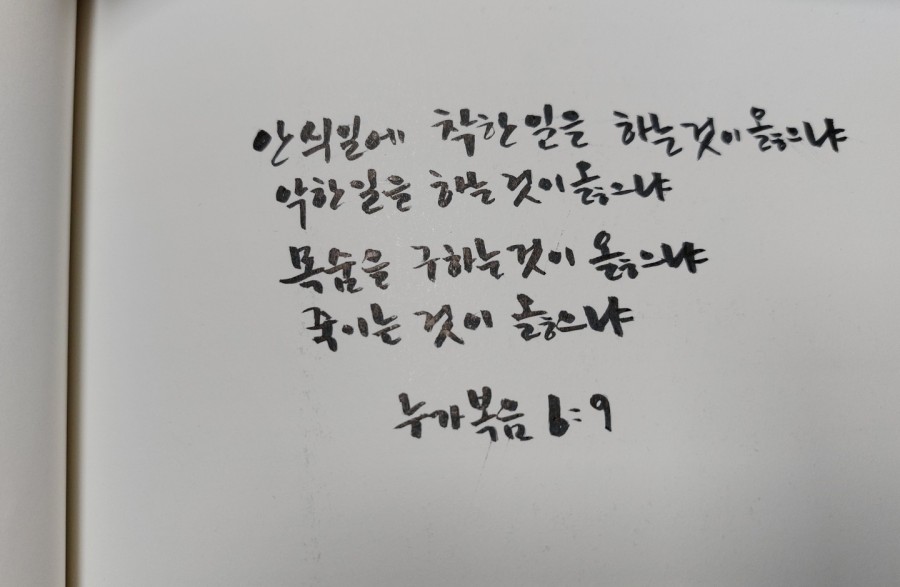 안식일에 착한일을 하는것이옳으냐
악한일을 하는것이옳으냐
목숨을 구하는것이 옳으냐
죽이는 것이 옳으냐
누가복음 6:9